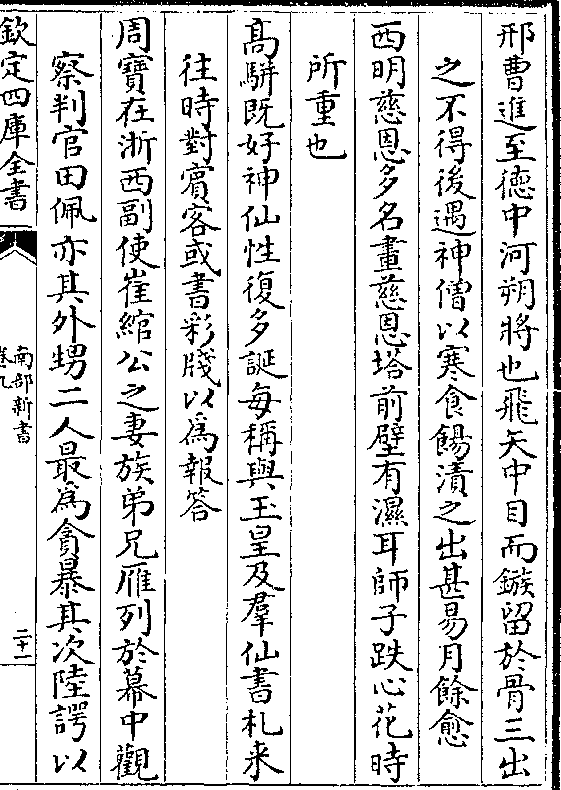 邢曹進至德中河朔將也飛矢中目而鏃留於骨三出
之不得後遇神僧以寒食餳漬之出甚易月餘愈
西明慈恩多名畫慈恩塔前壁有濕耳師子趺心花時
所重也
髙駢既好神仙性復多誕每稱與玉皇及羣仙書札来
往時對賓客或書彩牋以爲報答
周寶在浙西副使崔綰公之妻族弟兄雁列於幕中觀
察判官田佩亦其外甥二人最爲貪暴其次陸諤以
欽定四庫全書
南部新書
卷九
二十一